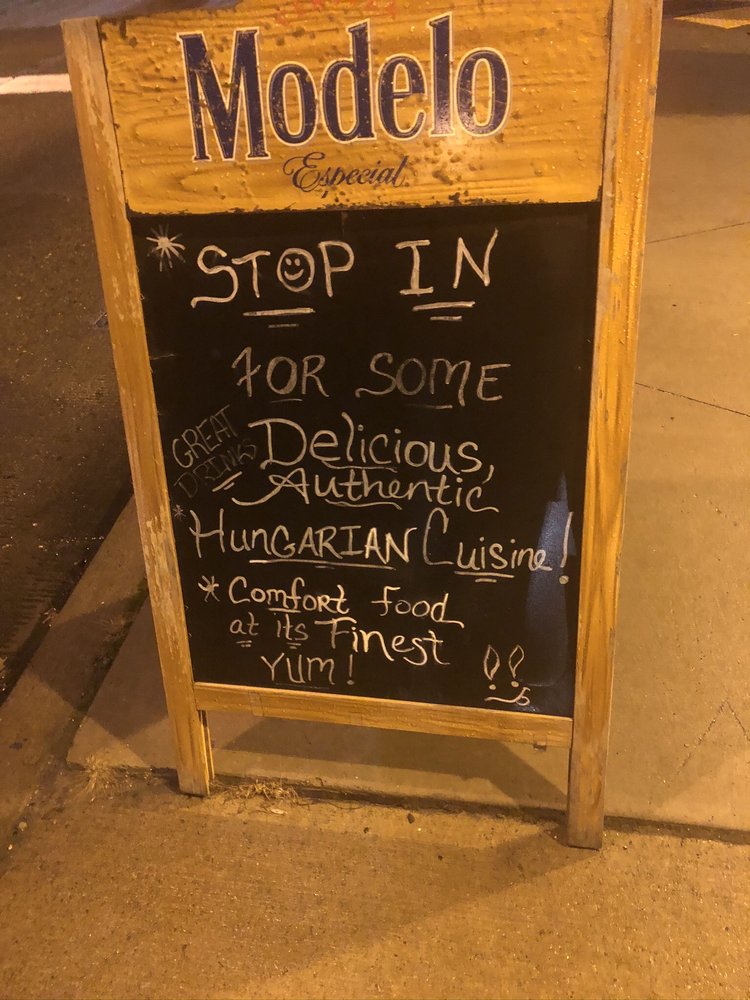 Modelo
Especial
STOP IN
FOR SOME
GREAT
DRINKS
Delicious,
Authentic
HUNGARIAN Cuisine!
Comfort food
at its Finest
YUM!
!!